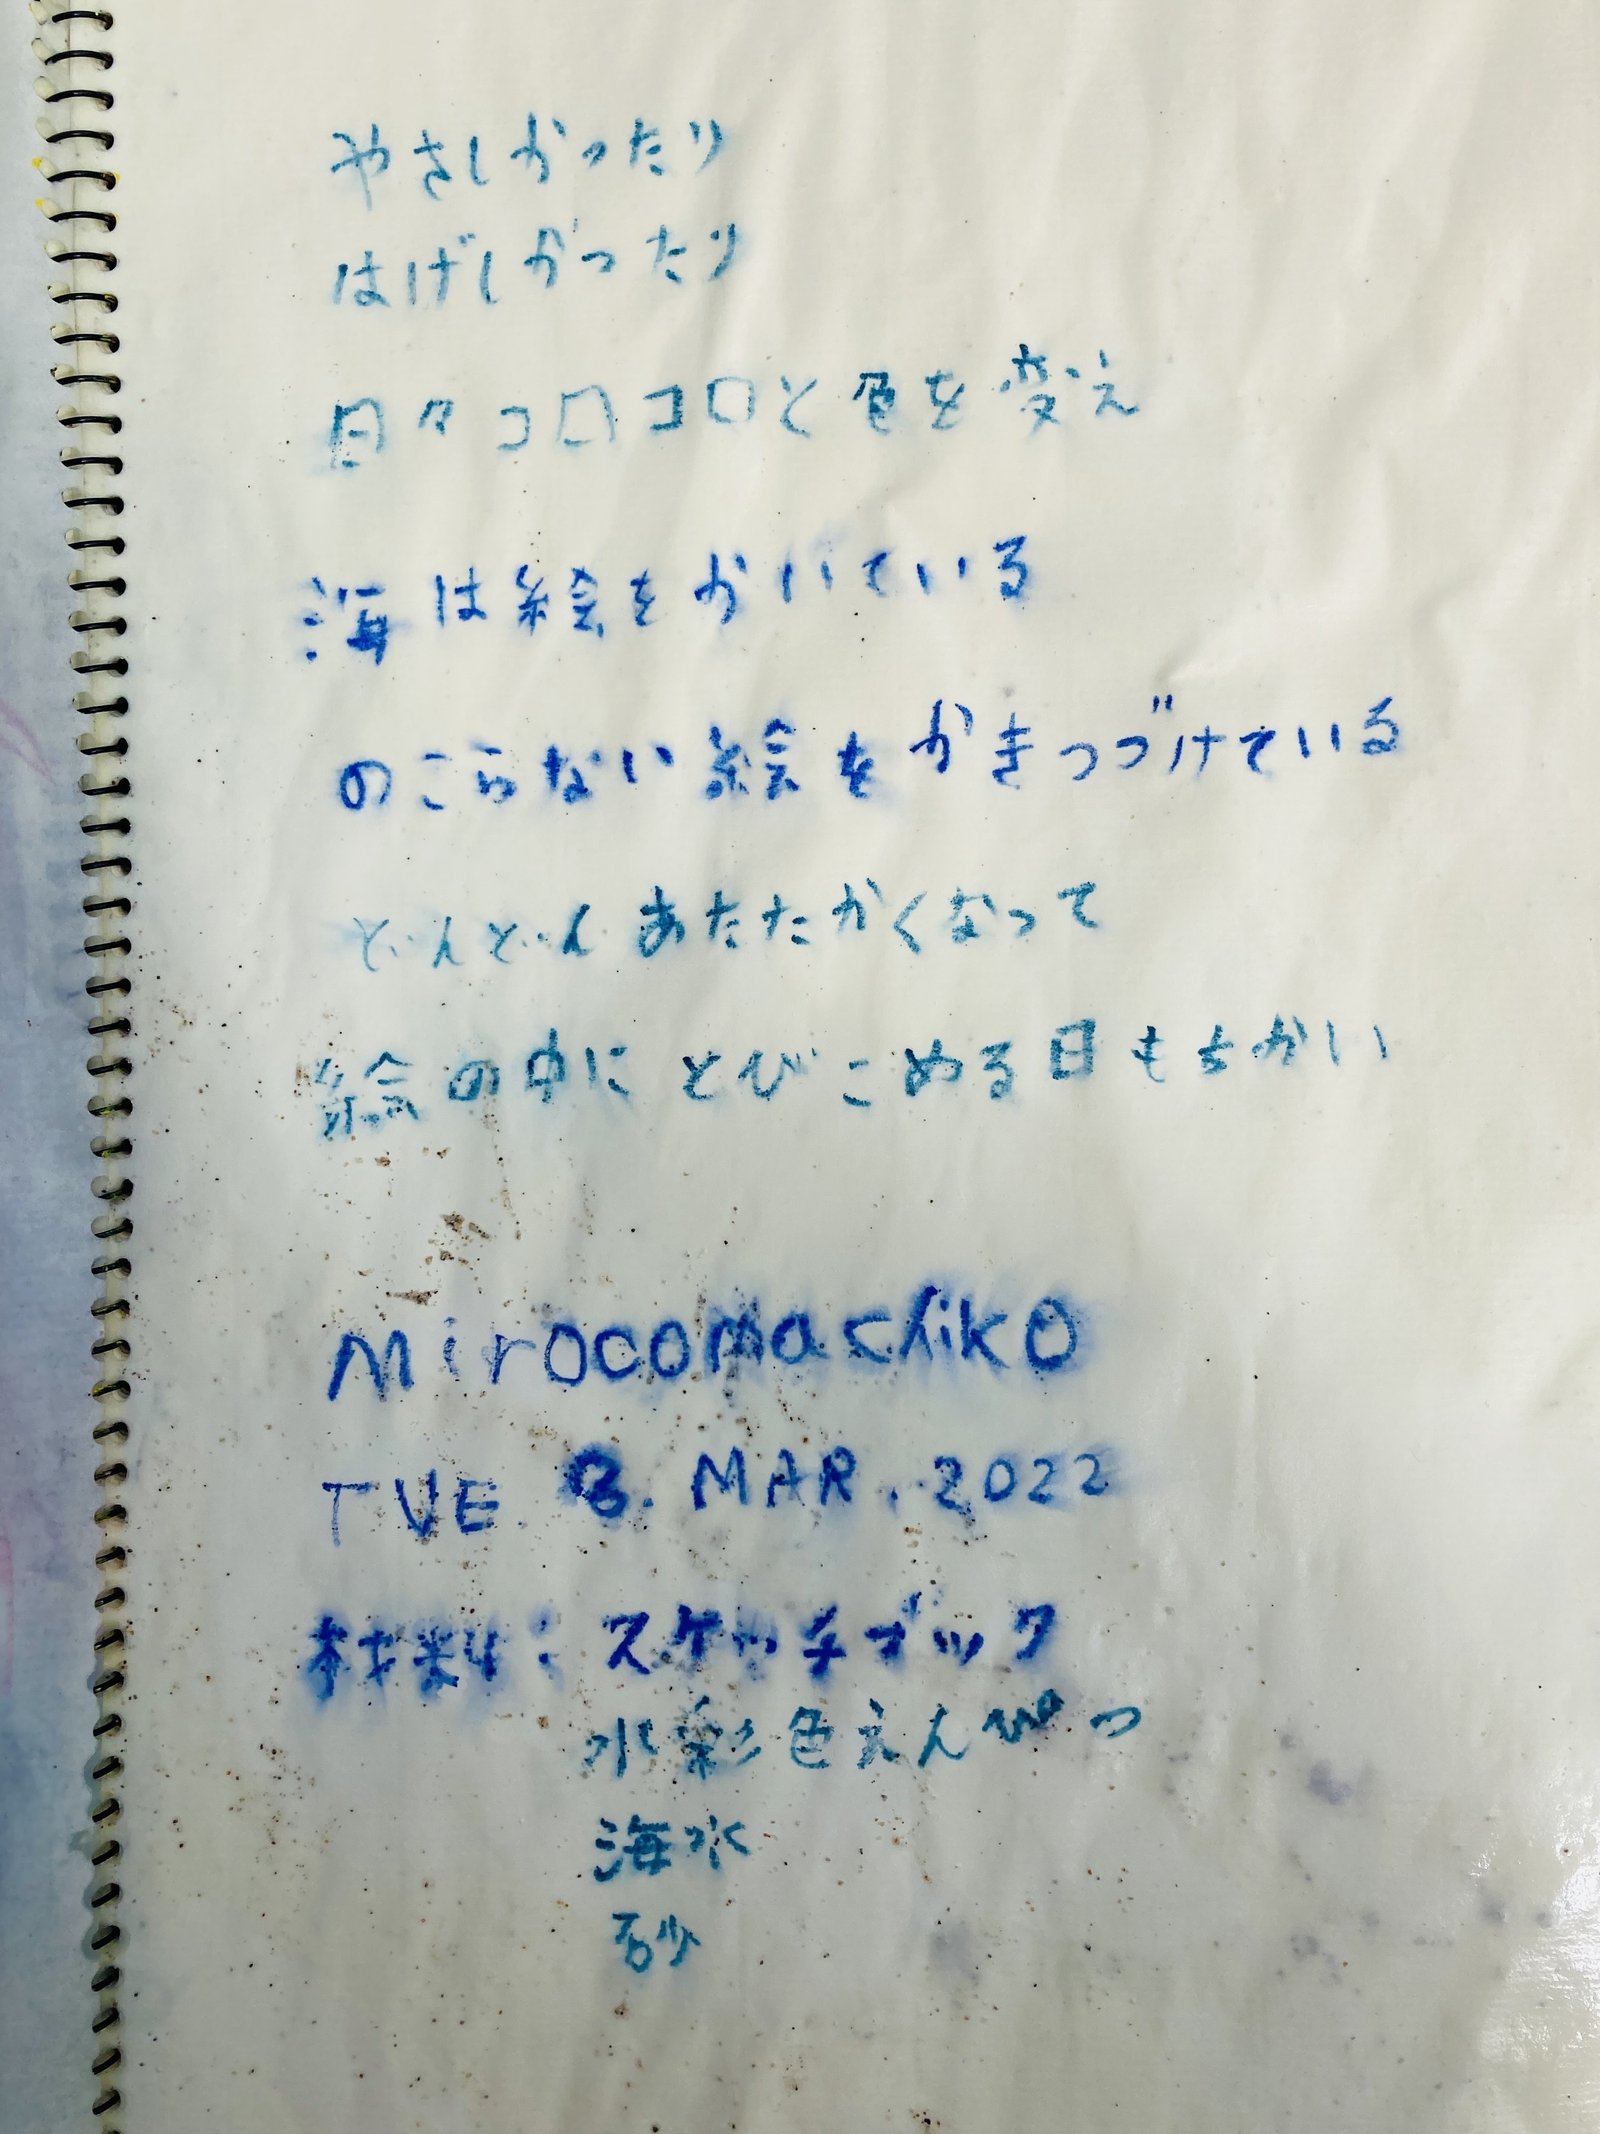 やさしかったり
はげしかったり
日々コロコロと色を変え
海は絵をかいている
のこらない絵をかきつづけている
どんどんあたたかくなって
絵の中にとびこめる日もちかい
Mirocomachiko
TUE. 8. MAR. 2022
材料:スケッチブック
水彩色えんぴつ
海水
砂